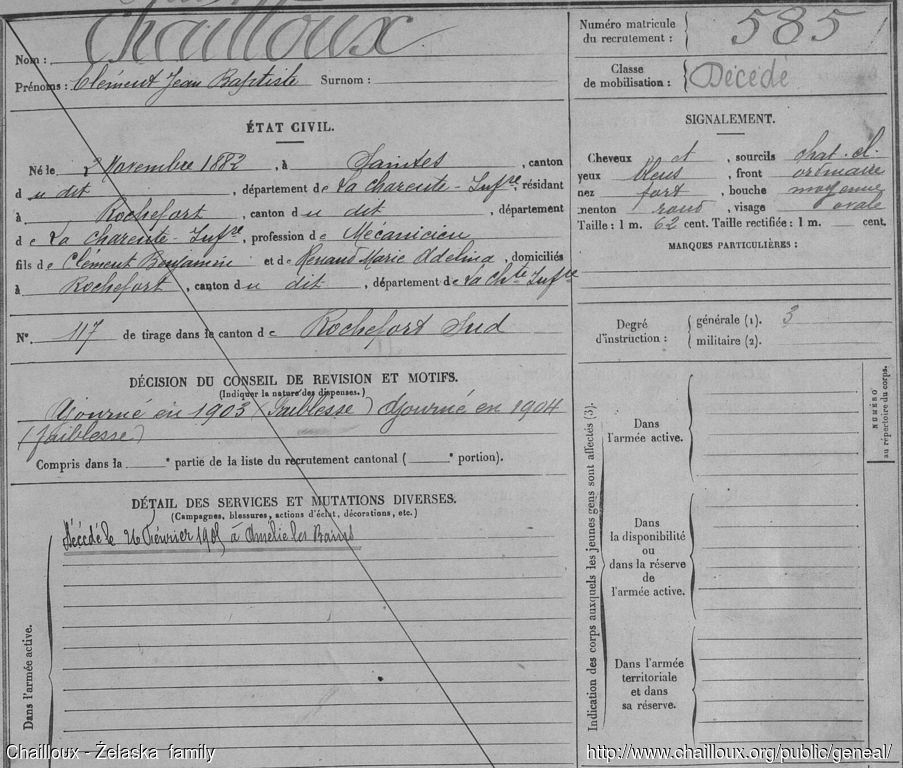 Chailloux
Nom :
Prénoms : Clément Jean Baptiste Surnom :
ÉTAT CIVIL.
Né le 2 Novembre 1882, à Saintes, canton
d u dit, département de La Charente-Infre, résidant
à Rochefort, canton d u dit, département
de La Charente-Infre, profession de Mécanicien
fils de Clément Benjamin et de Renaud Marie Adelina, domiciliés
à Rochefort, canton du dit, département de La Chte Infre
N° 117 de tirage dans le canton de Rochefort Sud
DÉCISION DU CONSEIL DE REVISION ET MOTIFS.
(Indiquer la nature des dispenses.)
Ajourné en 1903 (faiblesse) Ajourné en 1904
(faiblesse)
Compris dans la e partie de la liste du recrutement cantonal ( e portion).
DÉTAIL DES SERVICES ET MUTATIONS DIVERSES.
(Campagnes, blessures, actions d'éclat, décorations, etc.)
Décédé le 26 Février 1905 à Amélie les Bains
Dans l'armée active.
Numéro matricule
du recrutement : 585
Classe
de mobilisation : Décédé
SIGNALEMENT.
Cheveux et, sourcils chat. cl.
yeux bleus, front ordinaire
nez fort, bouche moyenne
menton rond, visage ovale
Taille : 1 m. 62 cent. Taille rectifiée : 1 m. cent.
MARQUES PARTICULIÈRES :
Degré
d'instruction :
générale (1). 3
militaire (2).
Indication des corps auxquels les jeunes gens sont affectés (3).
Dans
l'armée active.
Dans
la disponibilité
ou
dans la réserve
de
l'armée active.
Dans l'armée
territoriale
et dans
sa réserve.
NUMÉRO
au répertoire du corps.
Chailloux - Želaska family
http://www.chailloux.org/public/geneal/